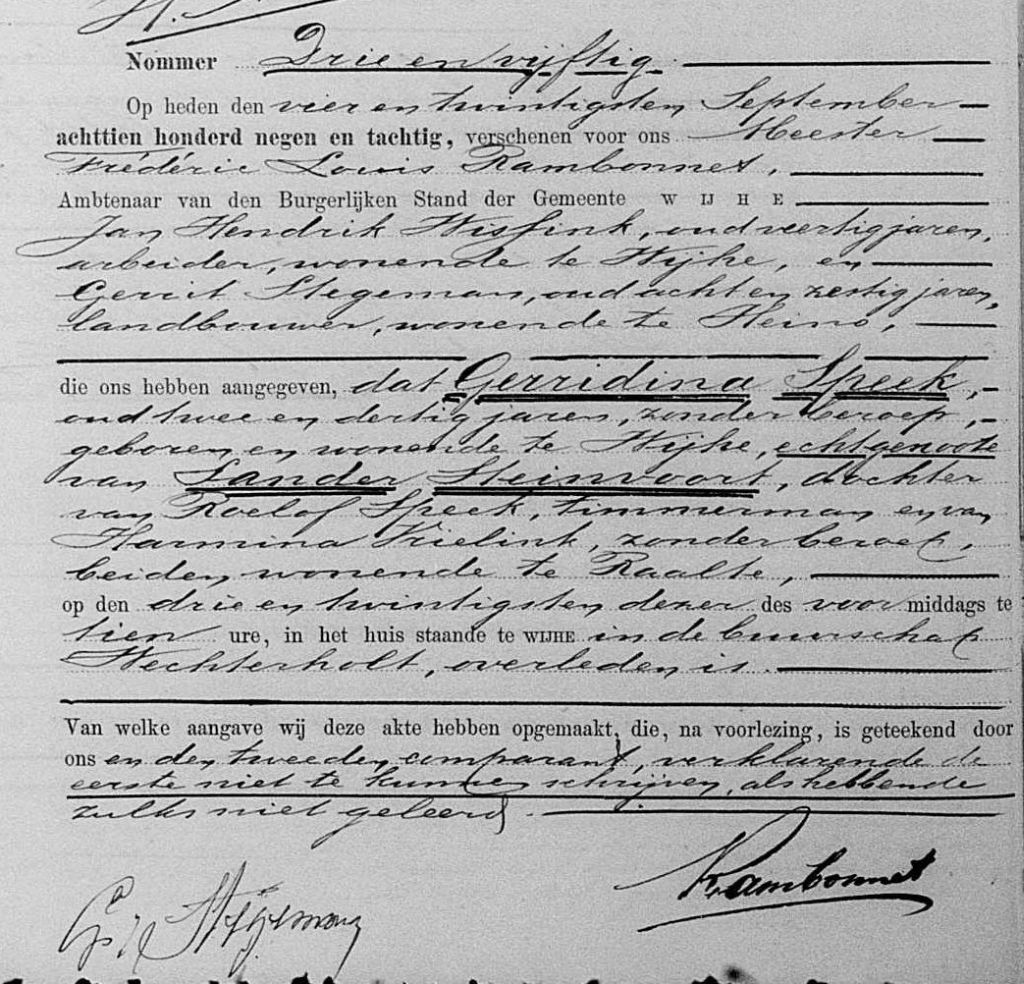 Nommer Drie en vijftig.
Op heden den vier en twintigsten September
achttien honderd negen en tachtig, verschenen voor ons Meester
Frédéric Louis Rambonnet,
Ambtenaar van den Burgerlijken Stand der Gemeente WIJHE
Jan Hendrik Wissink, oud veertig jaren,
arbeider, wonende te Wijhe, en
Gerrit Stegeman, oud acht en zestig jaren,
landbouwer, wonende te Heino,
die ons hebben aangegeven, dat Gerridina Speek,
oud twee en dertig jaren, zonder beroep,
geboren en wonende te Wijhe, echtgenoote
van Sander Steinvoort, dochter
van Roelof Speek, timmerman en van
Harmina Krielink, zonder beroep,
beiden wonende te Raalte,
op den drie en twintigsten dezer des voormiddags te
tien ure, in het huis staande te WIJHE in de buurschap
Wechterholt, overleden is.
Van welke aangave wij deze akte hebben opgemaakt, die, na voorlezing, is geteekend door
ons en den tweeden comparant, verklarende de
eerste niet te kunnen schrijven, als hebbende
zulks niet geleerd.
Rambonnet
Stegeman